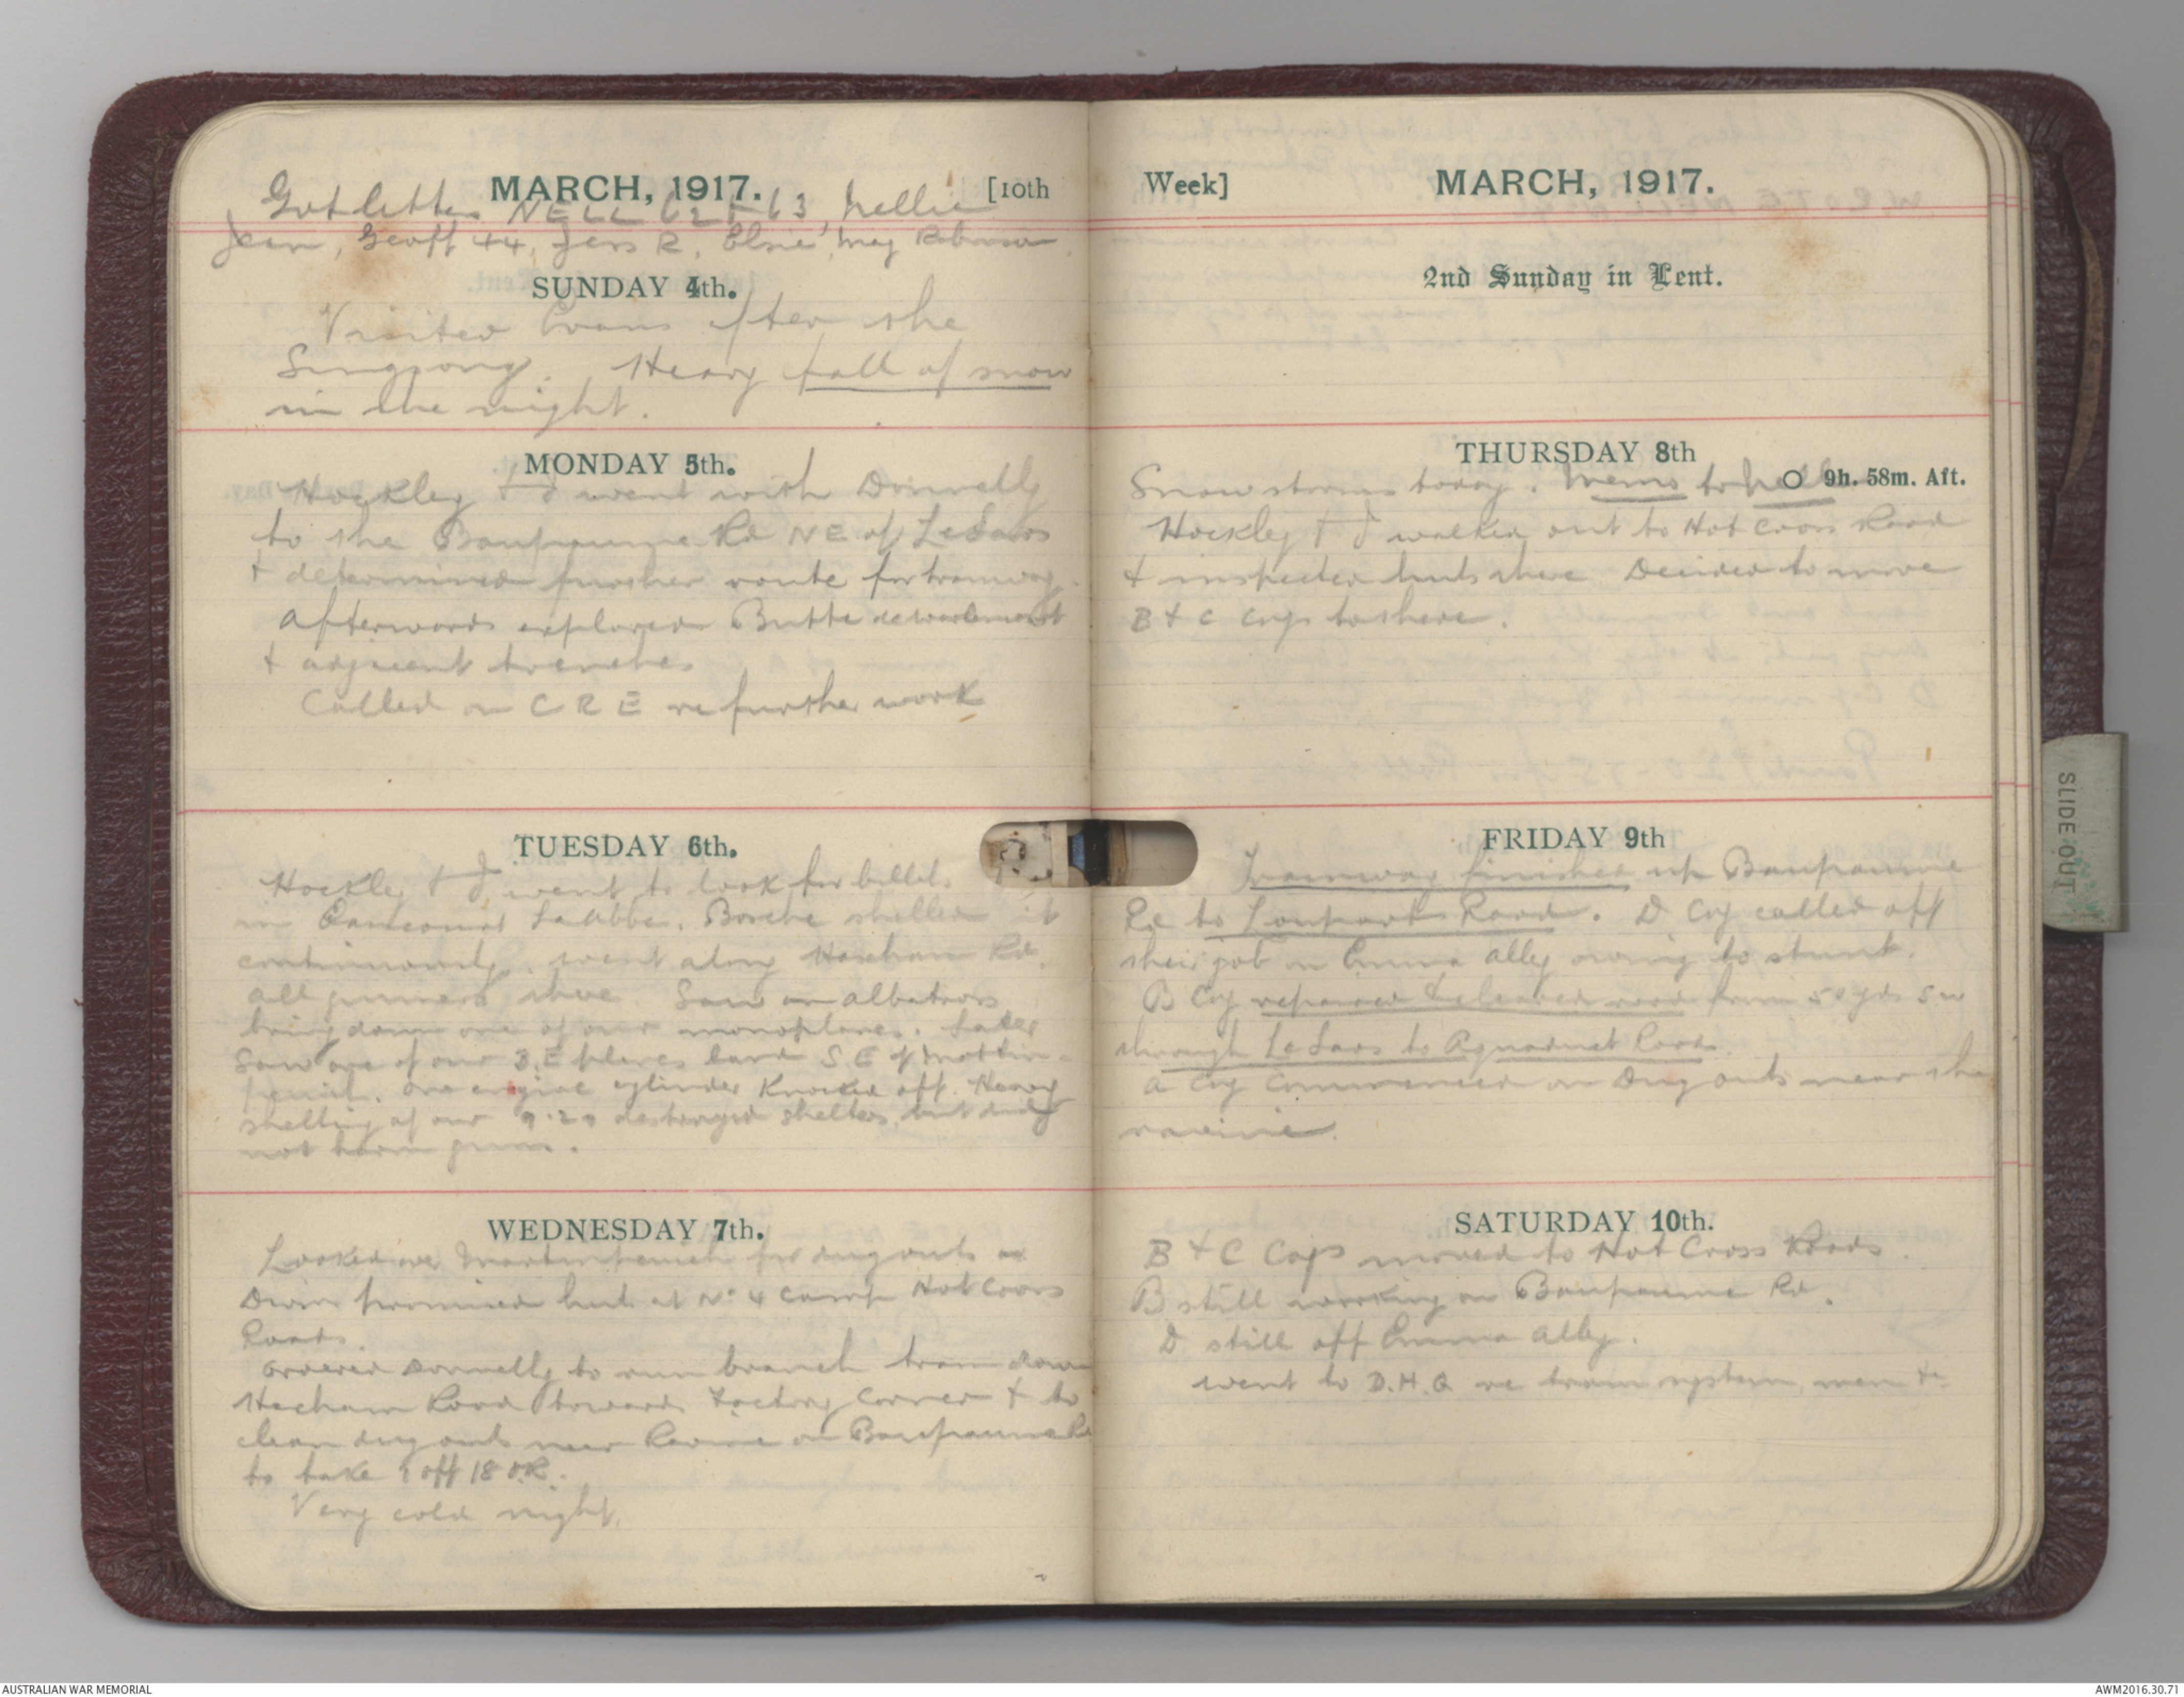 MARCH, 1917. [10th
Got letters NELL 62 + 63, Nellie
Jean, Geoff 44, Jess R, Elsie, May Robinson
SUNDAY 4th.
Visited Evans after the
Singsong. Heavy fall of snow
in the night.
MONDAY 5th.
Hockley & I went with Donnelly
to the Baupaume Rd NE of Le Sars
& determined further route for tramway.
Afterwards explored Butte de Warlencourt
& adjacent trenches
Called on C R E re further work
TUESDAY 6th.
Hockley & I went to look for billets
in Eaucourt L'Abbe. Bosche shelled it
continuously. went along Hexham Rd.
all gunners there. Saw an albatross
bring down one of our monoplanes. Later
Saw one of our B.E planes land S.E of Martin-
puich. One engine cylinder knocked off. Heavy
shelling of our 9.2s destroyed shelters but did
not harm guns.
WEDNESDAY 7th.
Looked over Martinpuich for dug outs as
Divn promised huts at No 4 Camp Hot Cross
Roads.
Ordered Donnelly to run branch tram down
Hexham Road towards Factory Corner & to
clean dug outs near Ravine on Baupaume Rd
to take 1 off 18 O.R.
Very cold night.
Week] MARCH, 1917.
2nd Sunday in Lent.
THURSDAY 8th
9h. 58m. Aft.
Snow storms today. to
Hockley & I walked out to Hot Cross Road
& inspected huts there. Decided to move
B & C Coys to there.
FRIDAY 9th
Tramway finished up Baupaume
Rd to Loupart Road. D Coy called off
their job on Emma Alley owing to stunt.
B Coy repaired & cleared road from 50 yds SW
through Le Sars to Aqueduct Road.
A Coy Commenced on Dug outs near the
ravine.
SATURDAY 10th.
B & C Coys moved to Hot Cross Roads.
B still working on Baupaume Rd.
D still off Emma Alley.
Went to D.H.Q re tram system, men &c
SLIDE OUT
AUSTRALIAN WAR MEMORIAL
AWM2016.30.71